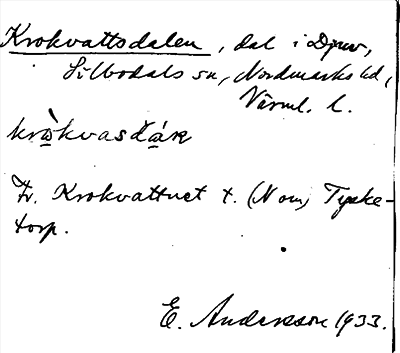 Krokvattsdalen, dal i Djuv,
Silbodals sn, Nordmarks hd,
Värml. l.
Fr. Krokvattnet t. (Nom) Tyske-
torp.
E. Andersson 1933.